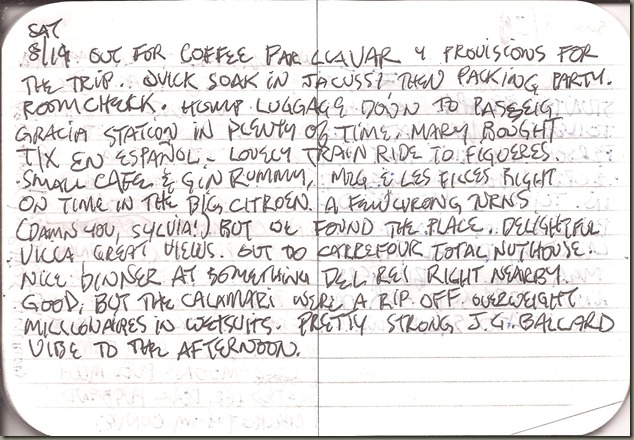 SAT
8/19 OUT FOR COFFEE PAR LLAVAR & PROVISIONS FOR
THE TRIP. QUICK SOAK IN JACUSSI THEN PACKING PARTY.
ROOM CHECK. HUMP LUGGAGE DOWN TO PASSEIG
GRACIA STATION IN PLENTY OF TIME. MARY BOUGHT
TIX EN ESPAÑOL - LOVELY TRAIN RIDE TO FIGUERES.
SMALL CAFE & GIN RUMMY, MIG & LES FILLES RIGHT
ON TIME IN THE BIG CITROEN. A FEW WRONG TURNS
(DAMN YOU, SYLVIA!) BUT WE FOUND THE PLACE. DELIGHTFUL
VILLA GREAT VIEWS. OUT TO CARREFOUR TOTAL NUTHOUSE.
NICE DINNER AT SOMETHING DEL REI RIGHT NEARBY.
GOOD, BUT THE CALAMARI WERE A RIP OFF. OVERWEIGHT
MILLIONAIRES IN WETSUITS. PRETTY STRONG J.G. BALLARD
VIBE TO THE AFTERNOON.